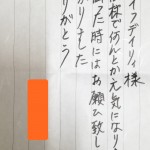 イフデイリィ様
様で何んとか元気になり
った時にはお願い致し
かりました
りがとう